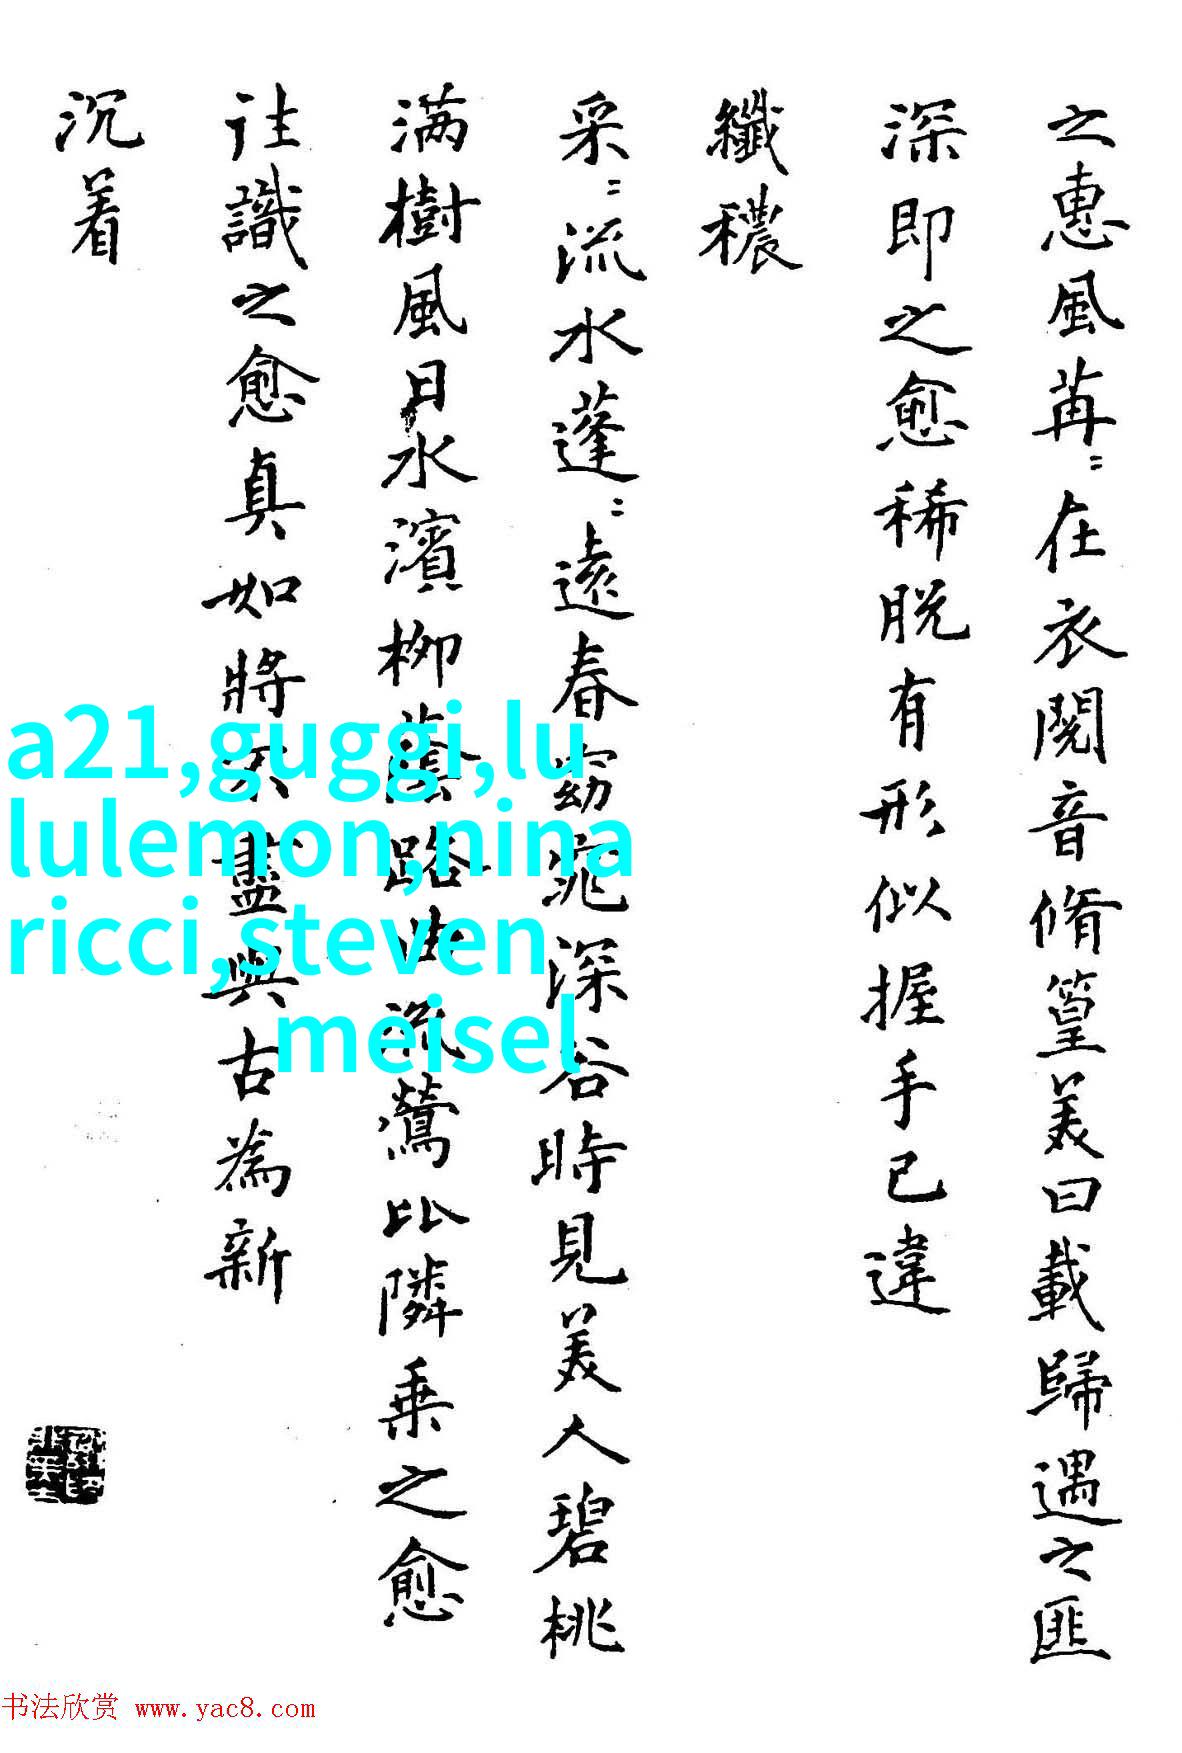 之惠風苒〻在衣閱音脩篁美曰載歸遇之匪
深即之愈稀脱有形似握手已違
纖穠
采〻流水蓬〻遠春窈窕深谷時見美人碧桃
满樹風日水濱柳蔭路曲流鶯比隣乗之愈
往識之愈真如將不盡與古為新
沉着
a21,guggi,lu
lulemon,nina
ricci,steven
meisel
书法欣赏 www.yac8.com